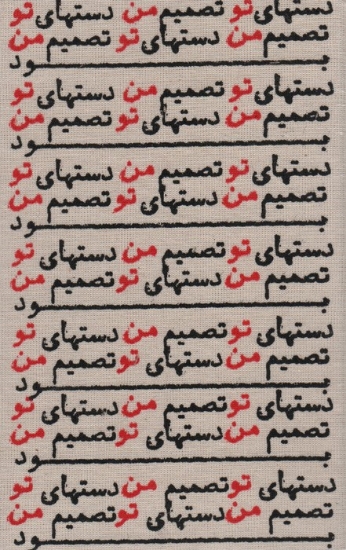 دستهای تو تصمیم من دستهای تو
تصمیم من دستهای تو تصمیم من
بـــــــــود
دستهای تو تصمیم من دستهای تو
تصمیم من دستهای تو تصمیم من
بـــــــــود
دستهای تو تصمیم من دستهای تو
تصمیم من دستهای تو تصمیم من
بـــــــــود
دستهای تو تصمیم من دستهای تو
تصمیم من دستهای تو تصمیم من
بـــــــــود
دستهای تو تصمیم من دستهای تو
تصمیم من دستهای تو تصمیم من
بـــــــــود
دستهای تو تصمیم من دستهای تو
تصمیم من دستهای تو تصمیم من
بـــــــــود
دستهای تو تصمیم من دستهای تو
تصمیم من دستهای تو تصمیم من
بـــــــــود